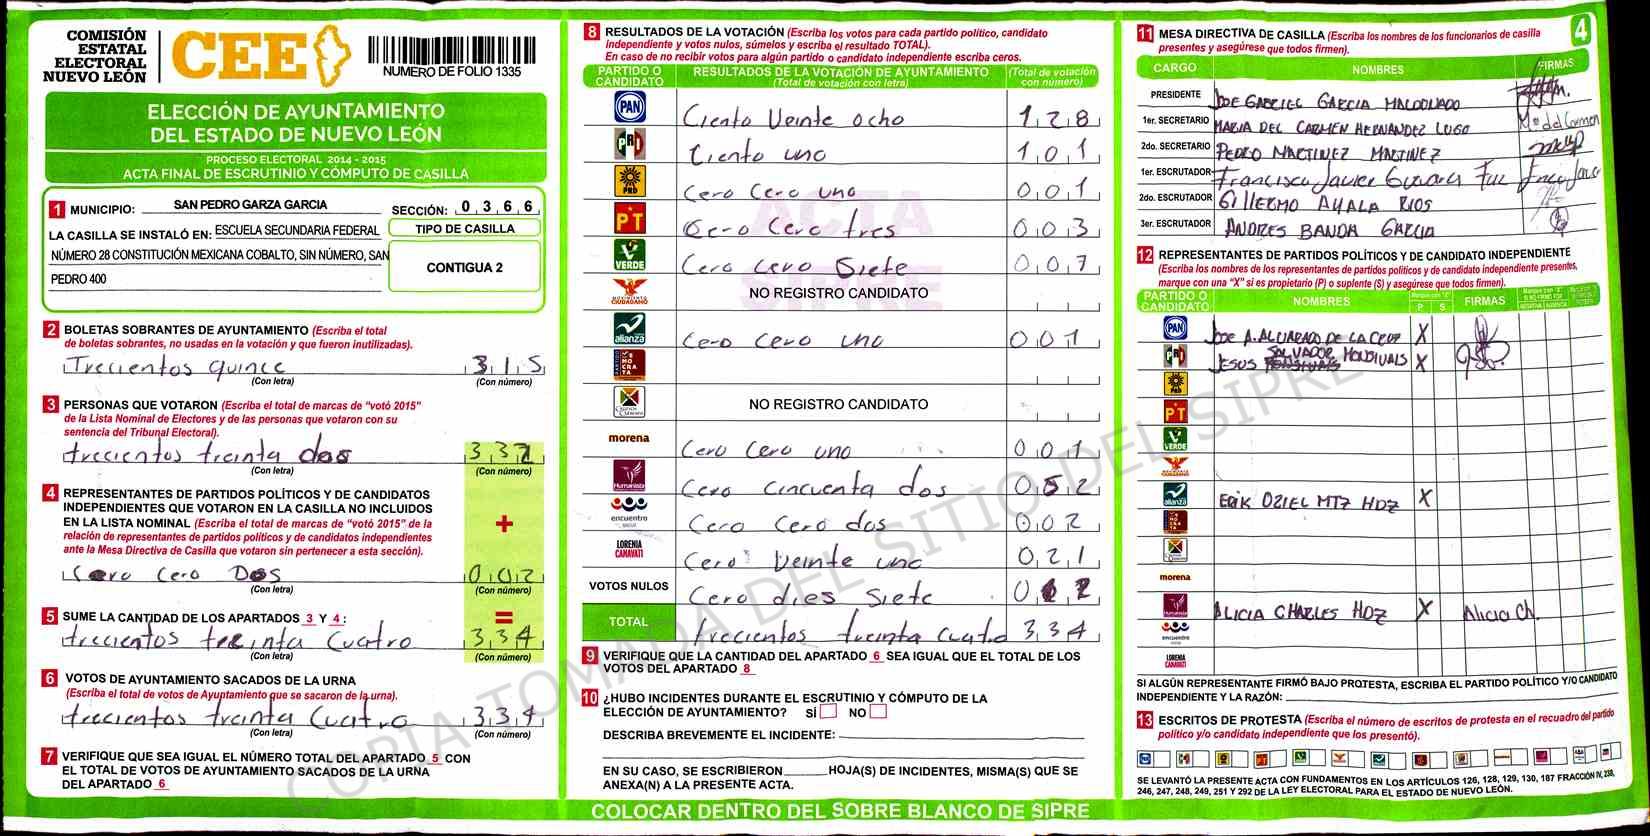 COMISIÓN
ESTATAL
ELECTORAL
NUEVO LEÓN
CEE
NUMERO DE FOLIO 1335
ELECCIÓN DE AYUNTAMIENTO
DEL ESTADO DE NUEVO LEÓN
PROCESO ELECTORAL 2014 - 2015
ACTA FINAL DE ESCRUTINIO Y CÓMPUTO DE CASILLA
1 MUNICIPIO: SAN PEDRO GARZA GARCIA SECCIÓN: 0 3 6 6
LA CASILLA SE INSTALÓ EN: ESCUELA SECUNDARIA FEDERAL
NÚMERO 28 CONSTITUCIÓN MEXICANA COBALTO, SIN NÚMERO, SAN
PEDRO 400
TIPO DE CASILLA
CONTIGUA 2
2 BOLETAS SOBRANTES DE AYUNTAMIENTO (Escriba el total
de boletas sobrantes, no usadas en la votación y que fueron inutilizadas).
Trecientos quince 3 1 5
(Con letra) (Con número)
3 PERSONAS QUE VOTARON (Escriba el total de marcas de "votó 2015"
de la Lista Nominal de Electores y de las personas que votaron con su
sentencia del Tribunal Electoral).
trecientos treinta dos 3 3 2
(Con letra) (Con número)
4 REPRESENTANTES DE PARTIDOS POLÍTICOS Y DE CANDIDATOS
INDEPENDIENTES QUE VOTARON EN LA CASILLA NO INCLUIDOS
EN LA LISTA NOMINAL (Escriba el total de marcas de "votó 2015" de la
relación de representantes de partidos políticos y de candidatos independientes
ante la Mesa Directiva de Casilla que votaron sin pertenecer a esta sección).
+
Cero Cero Dos 0 0 2
(Con letra) (Con número)
=
5 SUME LA CANTIDAD DE LOS APARTADOS 3 Y 4:
trecientos treinta Cuatro 3 3 4
(Con letra) (Con número)
6 VOTOS DE AYUNTAMIENTO SACADOS DE LA URNA
(Escriba el total de votos de Ayuntamiento que se sacaron de la urna).
trecientos treinta Cuatro 3 3 4
(Con letra) (Con número)
7 VERIFIQUE QUE SEA IGUAL EL NÚMERO TOTAL DEL APARTADO 5 CON
EL TOTAL DE VOTOS DE AYUNTAMIENTO SACADOS DE LA URNA
DEL APARTADO 6
8 RESULTADOS DE LA VOTACIÓN (Escriba los votos para cada partido político, candidato
independiente y votos nulos, súmelos y escriba el resultado TOTAL).
En caso de no recibir votos para algún partido o candidato independiente escriba ceros.
PARTIDO O CANDIDATO
RESULTADOS DE LA VOTACIÓN DE AYUNTAMIENTO
(Total de votación con letra)
(Total de votación con número)
PAN Ciento Veinte ocho 1 2 8
PRI Ciento uno 1 0 1
PRD Cero Cero uno 0 0 1
PT Cero Cero tres 0 0 3
VERDE Cero cero Siete 0 0 7
MOVIMIENTO CIUDADANO NO REGISTRO CANDIDATO
alianza Cero Cero uno 0 0 1
DEMOCRATA
NO REGISTRO CANDIDATO
morena Cero Cero uno 0 0 1
Humanista Cero Cincuenta dos 0 5 2
encuentro social Cero Cero dos 0 0 2
LORENIA CANAVATI Cero Veinte uno 0 2 1
VOTOS NULOS Cero dies Siete 0 1
TOTAL trecientos treinta Cuatro 3 3 4
ACTA
SIPRE
9 VERIFIQUE QUE LA CANTIDAD DEL APARTADO 6 SEA IGUAL QUE EL TOTAL DE LOS
VOTOS DEL APARTADO 8
10 ¿HUBO INCIDENTES DURANTE EL ESCRUTINIO Y CÓMPUTO DE LA
ELECCIÓN DE AYUNTAMIENTO? SÍ NO
DESCRIBA BREVEMENTE EL INCIDENTE:
EN SU CASO, SE ESCRIBIERON HOJA(S) DE INCIDENTES, MISMA(S) QUE SE
ANEXA(N) A LA PRESENTE ACTA.
COLOCAR DENTRO DEL SOBRE BLANCO DE SIPRE
4
11 MESA DIRECTIVA DE CASILLA (Escriba los nombres de los funcionarios de casilla
presentes y asegúrese que todos firmen).
CARGO NOMBRES FIRMAS
PRESIDENTE JOSE GABRIEL GARCIA MALDONADO
1er. SECRETARIO MARIA DEL CARMEN HERNANDEZ LUGO Ma del Carmen
2do. SECRETARIO PEDRO MARTINEZ MARTINEZ
1er. ESCRUTADOR Francisco Javier
2do. ESCRUTADOR GILLERMO AYALA RIOS
3er. ESCRUTADOR ANDRES BANDA GARCIA
12 REPRESENTANTES DE PARTIDOS POLÍTICOS Y DE CANDIDATO INDEPENDIENTE
(Escriba los nombres de los representantes de partidos políticos y de candidato independiente presentes,
marque con una "X" si es propietario (P) o suplente (S) y asegúrese que todos firmen).
PARTIDO O CANDIDATO NOMBRES P S FIRMAS
PAN JOSE A. ALVARADO DE LA CRUZ X
PRI JESUS SALVADOR X
PRD
PT
VERDE
alianza ERIK OZIEL MTZ HDZ X
morena
Humanista ALICIA CHARLES HDZ X Alicia Ch.
encuentro
LORENIA CANAVATI
SI ALGÚN REPRESENTANTE FIRMÓ BAJO PROTESTA, ESCRIBA EL PARTIDO POLÍTICO Y/O CANDIDATO
INDEPENDIENTE Y LA RAZÓN:
13 ESCRITOS DE PROTESTA (Escriba el número de escritos de protesta en el recuadro del partido
político y/o candidato independiente que los presentó).
SE LEVANTÓ LA PRESENTE ACTA CON FUNDAMENTOS EN LOS ARTÍCULOS 126, 128, 129, 130, 187 FRACCIÓN IV, 238,
246, 247, 248, 249, 251 Y 292 DE LA LEY ELECTORAL PARA EL ESTADO DE NUEVO LEÓN.
COPIA TOMADA DEL SITIO DEL SIPRE